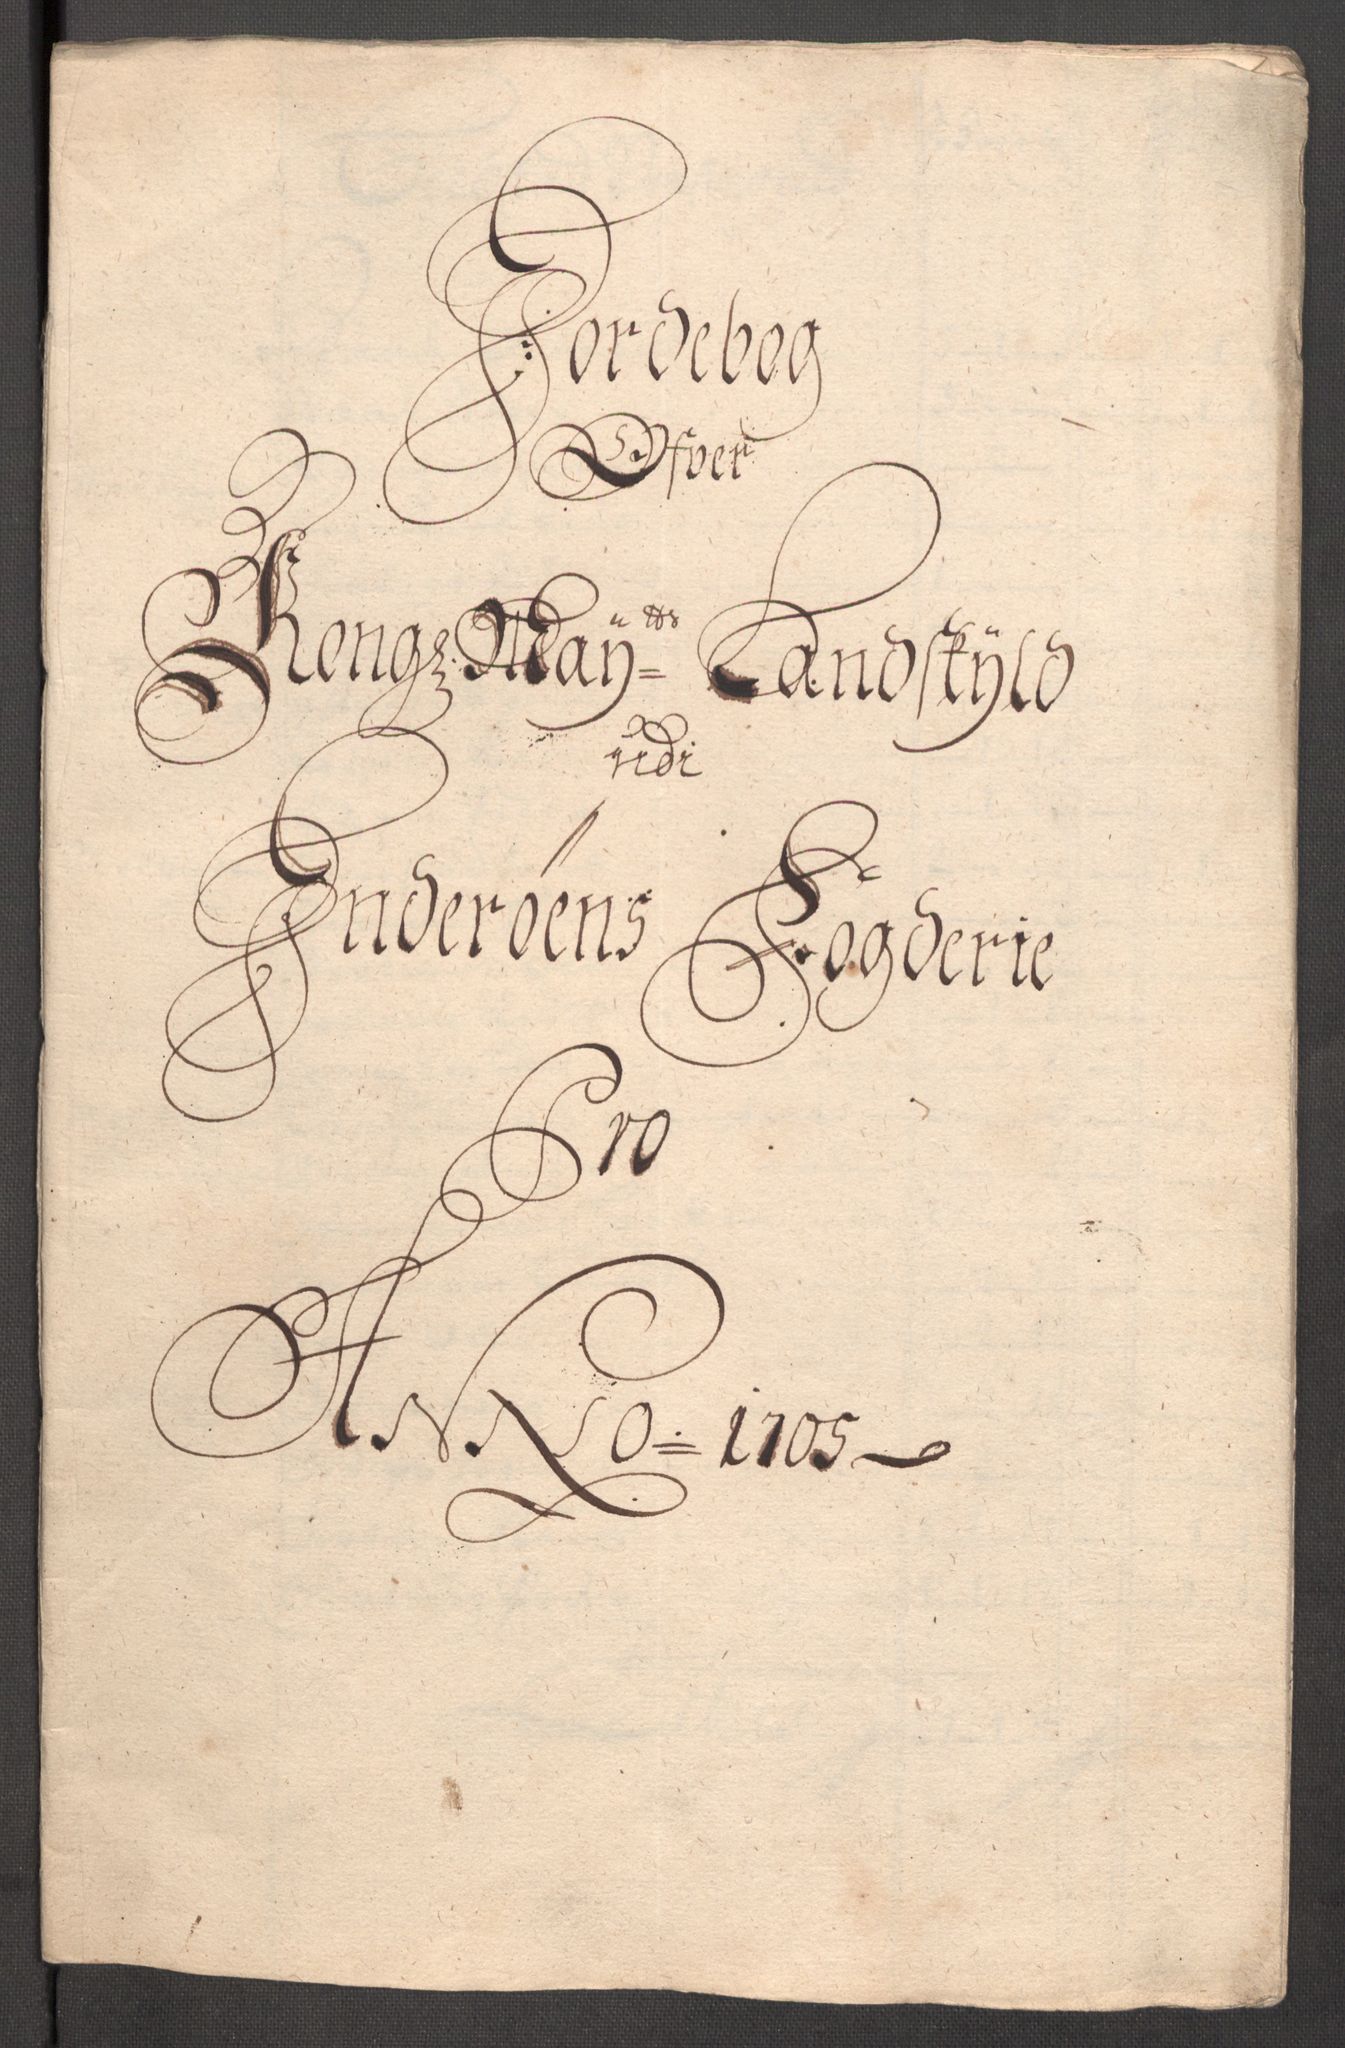 Jordebog
Ofver
Kongz Maÿ=tts Landskÿld
udi
Inderöens Fogderie
Pro
ANNO= 1705